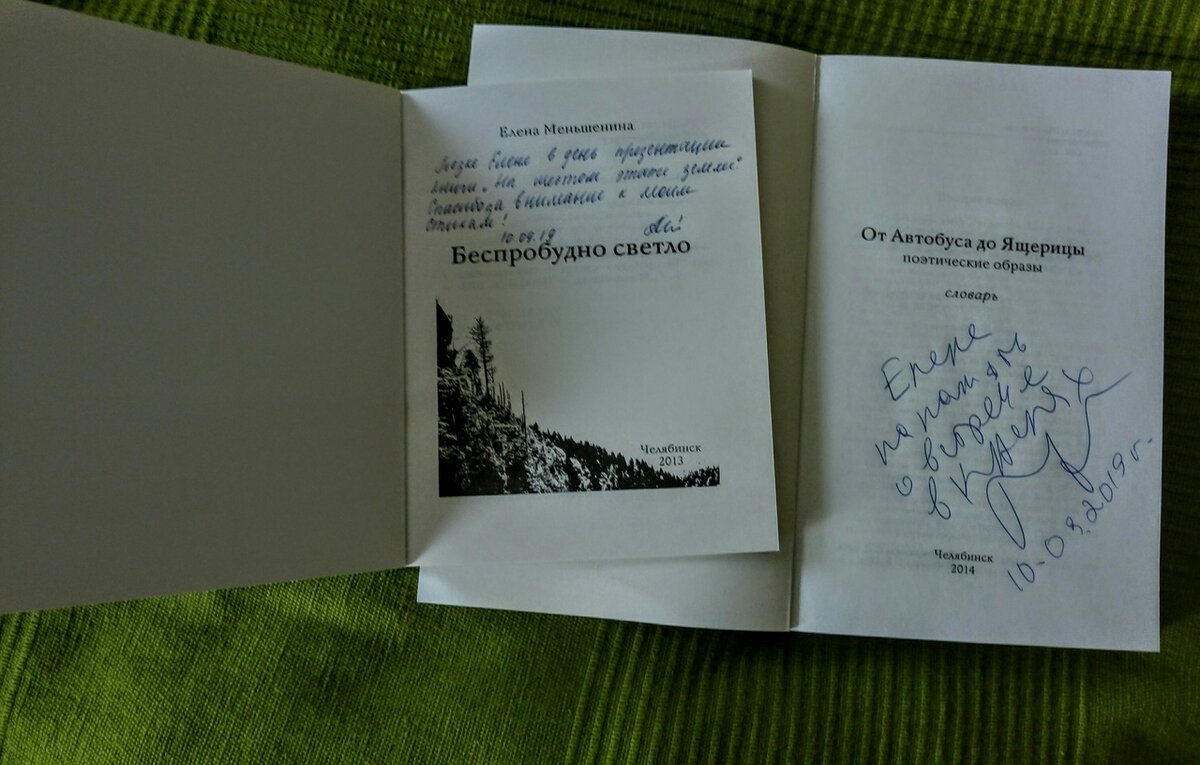 Елена Меньшенина
Тёзке Елене в день презентации
книги „На шестом этаже земли"
Спасибо за внимание к моим
стихам!
10.09.19
Беспробудно светло
Челябинск
2013
От Автобуса до Ящерицы
поэтические образы
словарь
Елене
на память
о встрече
в
10.09.2019 г.
Челябинск
2014